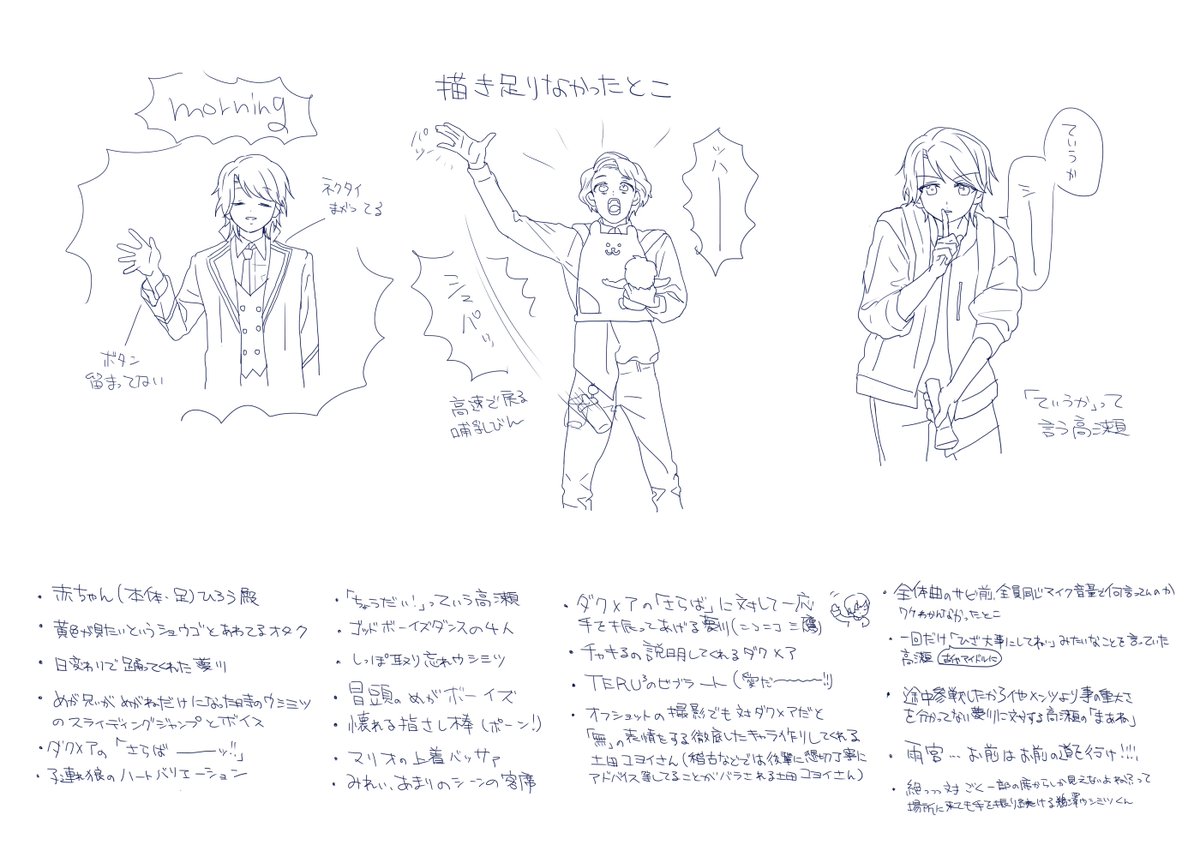 描き足りなかったとこ
morning
ネクタイ
まがってる
ボタン
留まってない
パッ
ッハ――
シュパッ
高速で戻る
哺乳びん
ていうか
「ていうか」って
言う高瀬
・赤ちゃん(本体・足)ひろう殿
・黄色が見たいというショウゴとあわてるオタク
・日変わりで踊ってくれた夢川
・めが兄ぃが、めがねだけになった時のウシミツ
のスライディングジャンプとボイス
・ダクメアの「さらば――ッ!!」
・子連れ狼のハートバリエーション
・「ちょうだい!」っていう高瀬
・ゴッドボーイズダンスの4人
・しっぽ取り忘れウシミツ
・冒頭のめがボーイズ
・懐れる指さし棒(ポーン!)
・マリオの上着バッサァ
・みれぃ、あまりのシーンの客席
・ダクメアの「さらば」に対して一応
手を振ってあげる夢川(ニコニコ三鷹)
・チャキるの説明してくれるダクメア
・TERU³のビブラート(愛だ~~~~!!)
・オフショットの撮影でも対ダクメアだと
「無」の表情をする徹底したキャラ作りしてくれる
土田コヨイさん(稽古などでは後輩に懇切丁寧に
アドバイス等してることがバラされる土田コヨイさん)
・全体曲のサビ前、全員同じマイク音量で何言ってんのか
ワケわかんなかったとこ
・一回だけ「ひざ大事にしてねっ」みたいなことを言っていた
高瀬
・途中参戦したから他メンツより事の重大さ
を分かってない夢川に対する高瀬の「まぁね」
・雨宮…お前はお前の道を行け!!!
・絶っっっ対ごく一部の席からしか見えないよねぇって
場所に来ても手を振り続ける鵜澤ウシミツくん